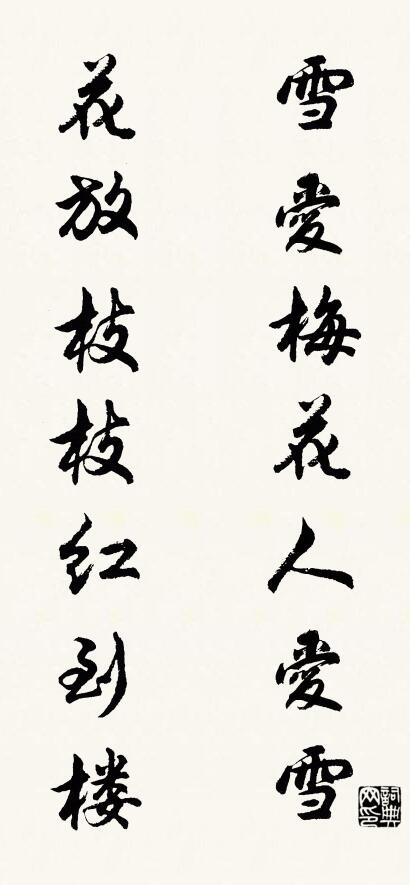 雪愛梅花人愛雪
花放枝枝红到楼
詞典网印